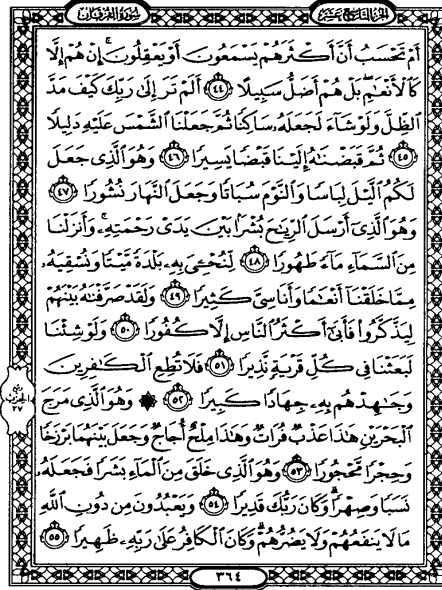 سورة الفرقان
الجزء التاسع عشر
أَمْ تَحْسَبُ أَنَّ أَكْثَرَهُمْ يَسْمَعُونَ أَوْ يَعْقِلُونَ ۚ إِنْ هُمْ إِلَّا
كَالْأَنْعَٰمِ ۖ بَلْ هُمْ أَضَلُّ سَبِيلًا ﴿٤٤﴾ أَلَمْ تَرَ إِلَىٰ رَبِّكَ كَيْفَ مَدَّ
الظِّلَّ وَلَوْ شَآءَ لَجَعَلَهُۥ سَاكِنًا ثُمَّ جَعَلْنَا الشَّمْسَ عَلَيْهِ دَلِيلًا
﴿٤٥﴾ ثُمَّ قَبَضْنَٰهُ إِلَيْنَا قَبْضًا يَسِيرًا ﴿٤٦﴾ وَهُوَ الَّذِى جَعَلَ
لَكُمُ الَّيْلَ لِبَاسًا وَالنَّوْمَ سُبَاتًا وَجَعَلَ النَّهَارَ نُشُورًا ﴿٤٧﴾
وَهُوَ الَّذِىٓ أَرْسَلَ الرِّيَٰحَ بُشْرًۢا بَيْنَ يَدَىْ رَحْمَتِهِۦ ۚ وَأَنزَلْنَا
مِنَ السَّمَآءِ مَآءً طَهُورًا ﴿٤٨﴾ لِّنُحْۦِىَ بِهِۦ بَلْدَةً مَّيْتًا وَنُسْقِيَهُۥ
مِمَّا خَلَقْنَآ أَنْعَٰمًا وَأَنَاسِىَّ كَثِيرًا ﴿٤٩﴾ وَلَقَدْ صَرَّفْنَٰهُ بَيْنَهُمْ
لِيَذَّكَّرُوا۟ فَأَبَىٰٓ أَكْثَرُ النَّاسِ إِلَّا كُفُورًا ﴿٥٠﴾ وَلَوْ شِئْنَا
لَبَعَثْنَا فِى كُلِّ قَرْيَةٍ نَّذِيرًا ﴿٥١﴾ فَلَا تُطِعِ الْكَٰفِرِينَ
وَجَٰهِدْهُم بِهِۦ جِهَادًا كَبِيرًا ﴿٥٢﴾ ۞ وَهُوَ الَّذِى مَرَجَ
الْبَحْرَيْنِ هَٰذَا عَذْبٌ فُرَاتٌ وَهَٰذَا مِلْحٌ أُجَاجٌ وَجَعَلَ بَيْنَهُمَا بَرْزَخًا
وَحِجْرًا مَّحْجُورًا ﴿٥٣﴾ وَهُوَ الَّذِى خَلَقَ مِنَ الْمَآءِ بَشَرًا فَجَعَلَهُۥ
نَسَبًا وَصِهْرًا ۗ وَكَانَ رَبُّكَ قَدِيرًا ﴿٥٤﴾ وَيَعْبُدُونَ مِن دُونِ اللَّهِ
مَا لَا يَنفَعُهُمْ وَلَا يَضُرُّهُمْ ۗ وَكَانَ الْكَافِرُ عَلَىٰ رَبِّهِۦ ظَهِيرًا ﴿٥٥﴾
ربع
الحزب
٣٧
٣٦٤